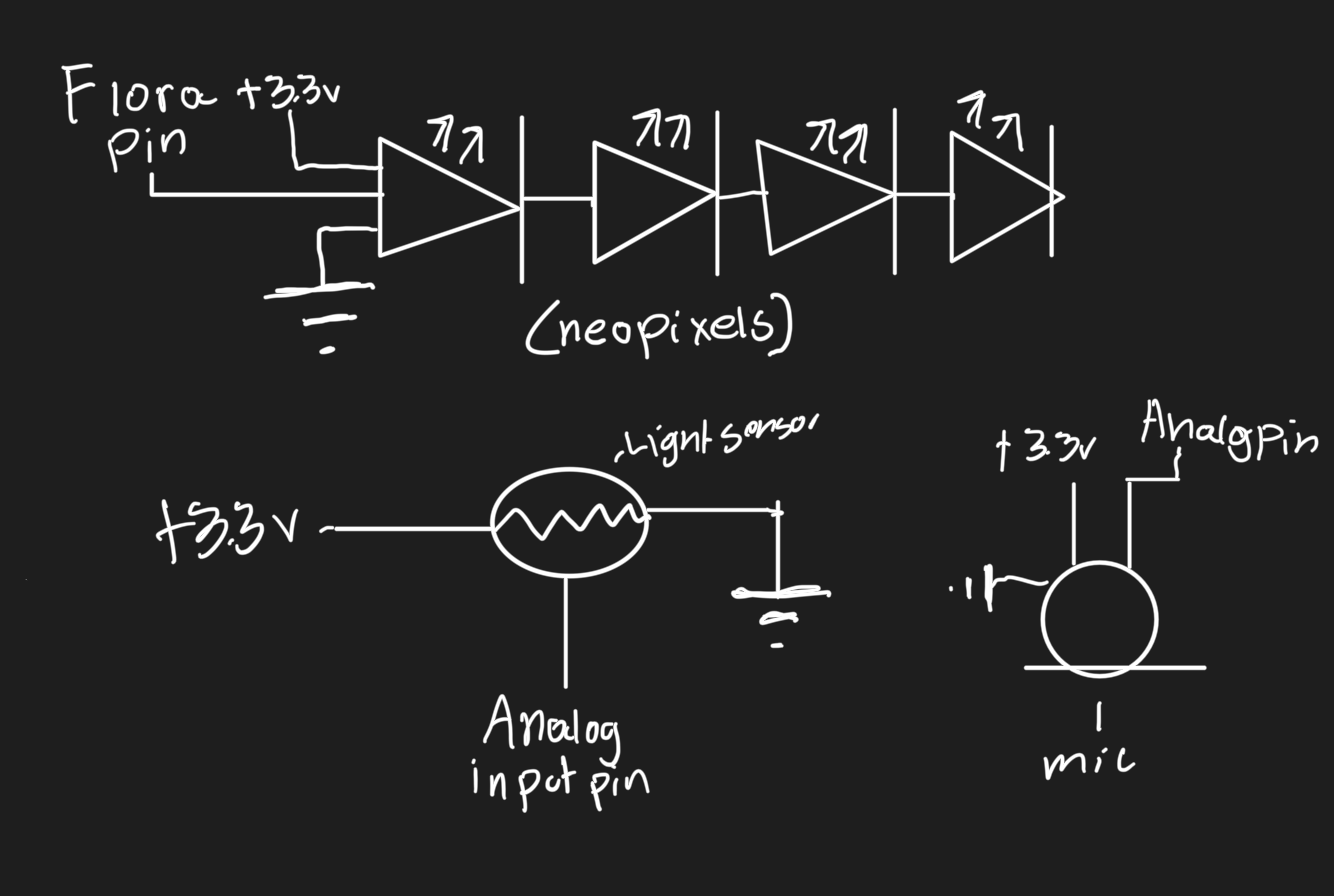 Flora +3.3v
pin
(neopixels)
Light sensor
+3.3v
Analog
input pin
+3.3v
Analgpin
mic